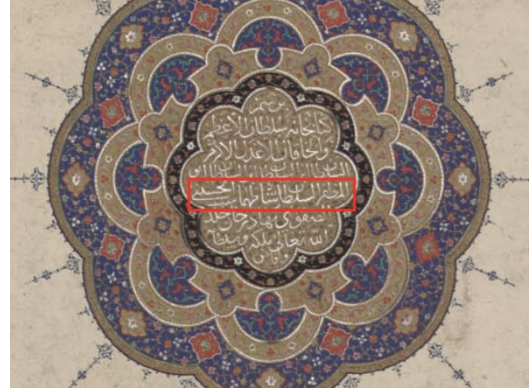 برسم
كتابخانه سلطان الاعظم
والخاقان الاعدل الاكرم
السلطان بن السلطان بن السلطان
المظفر السلطان شاه طهماسب الحسيني
الصفوي بهادر خان خلد
الله تعالى ملكه وسلطانه